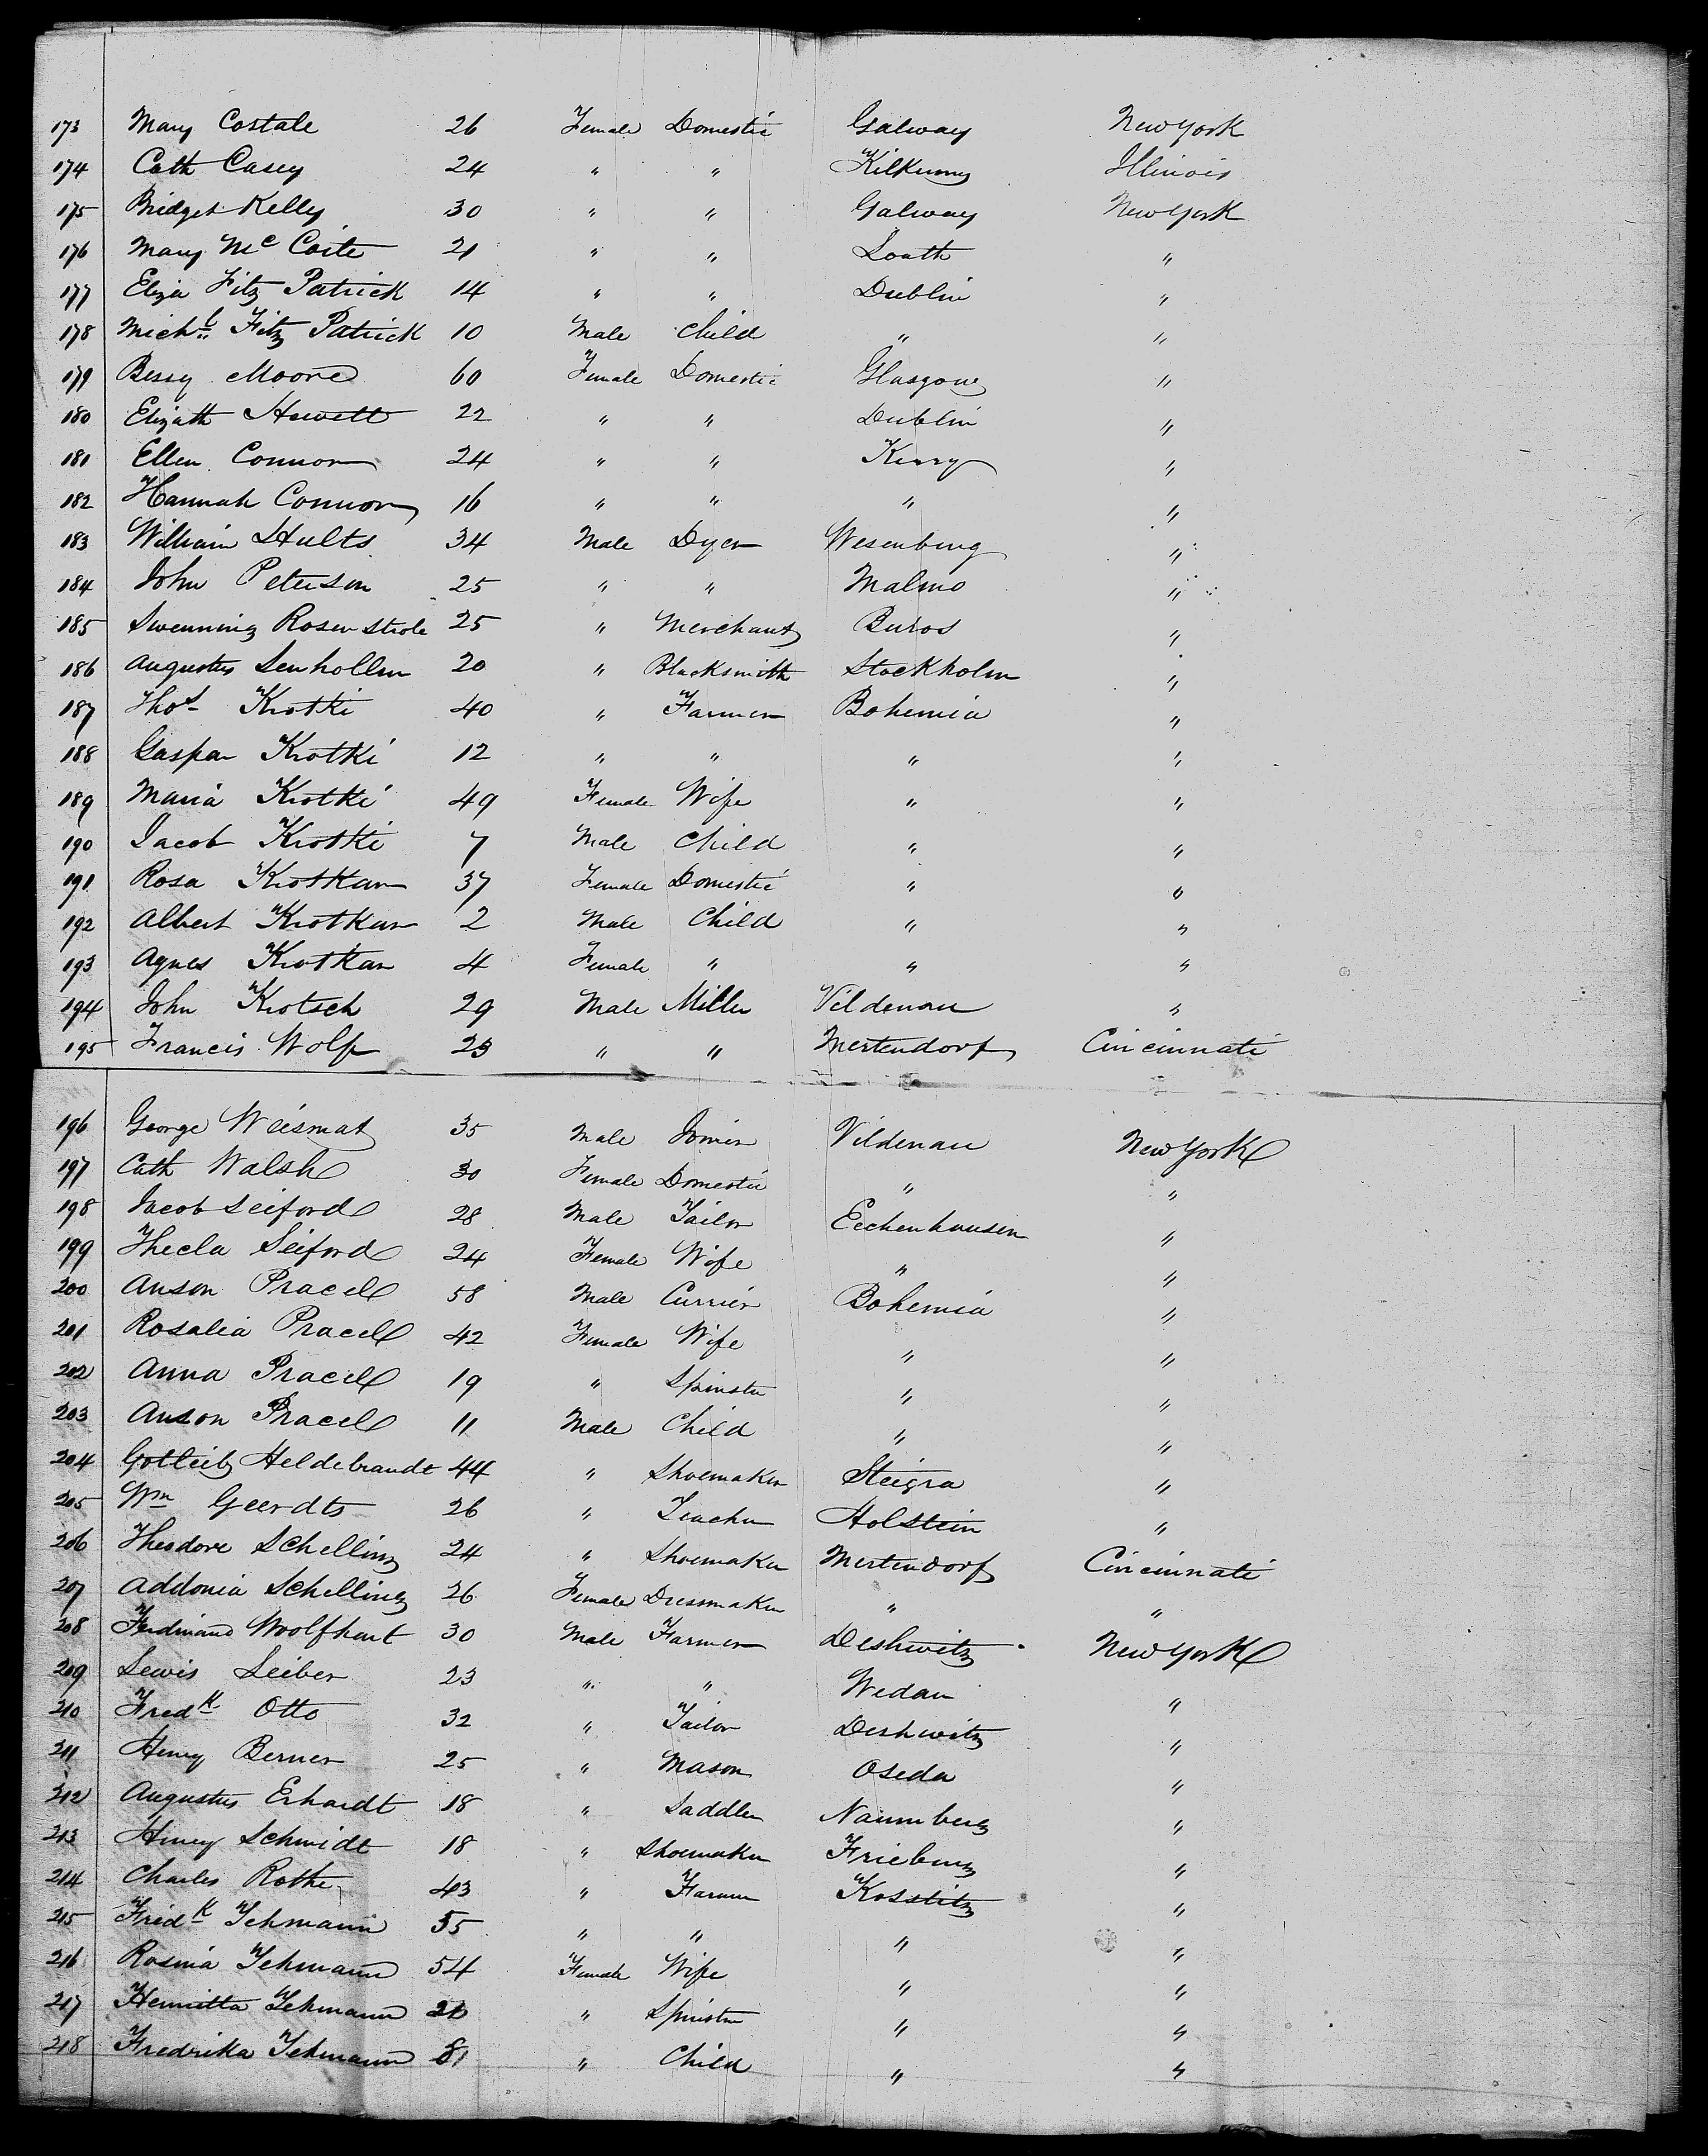 173 Mary Costale 26 Female Domestic Galway New York
174 Cath Casey 24 " " Kilkenny Illinois
175 Bridget Kelly 30 " " Galway New York
176 Mary Mc Coite 21 " " Louth "
177 Eliza Fitz Patrick 14 " " Dublin "
178 Michl Fitz Patrick 10 Male Child " "
179 Bessy Moore 60 Female Domestic Glasgow "
180 Elizath Hewett 22 " " Dublin "
181 Ellen Connor 24 " " Kerry "
182 Hannah Connor 16 " " " "
183 William Hults 34 Male Dyer Wesenburg "
184 John Peterson 25 " " Malmo "
185 Swenning Rosenstrole 25 " Merchant Buros "
186 Augustus Senhollen 20 " Blacksmith Stockholm "
187 Thos Krotki 40 " Farmer Bohemia "
188 Gaspar Krotki 12 " " " "
189 Maria Krotki 49 Female Wife " "
190 Jacob Krotki 7 Male Child " "
191 Rosa Krotkar 37 Female Domestic " "
192 Albert Krotkar 2 Male Child " "
193 Agnes Krotkar 4 Female " " "
194 John Krotsch 29 Male Miller Vildenau "
195 Francis Wolf 23 " " Mertendorf Cincinnati
196 George Weismat 35 Male Joiner Vildenau New York
197 Cath Walsh 30 Female Domestic " "
198 Jacob Seiford 28 Male Tailor Eechenhausen "
199 Thecla Seiford 24 Female Wife " "
200 Anson Pracel 58 Male Currier Bohemia "
201 Rosalia Pracel 42 Female Wife " "
202 Anna Pracel 19 " Spinster " "
203 Anson Pracel 11 Male Child " "
204 Gotleib Heldebrandt 44 " Shoemaker Steigra "
205 Wm Geerdts 26 " Teacher Holstein "
206 Theodore Schelling 24 " Shoemaker Mertendorf Cincinnati
207 Addonia Schelling 26 Female Dressmaker " "
208 Ferdinand Woolfhart 30 Male Farmer Deshwitz New York
209 Lewis Leiber 23 " " Wedau "
210 Fredk Otto 32 " Tailor Deshwitz "
211 Henry Berner 25 " Mason Oseda "
212 Augustus Erhardt 18 " Saddler Naumberg "
213 Henry Schmidt 18 " Shoemaker Frieburg "
214 Charles Rothe 43 " Farmer Kosstitz "
215 Fredk Tehmann 55 " " " "
216 Rosina Tehmann 54 Female Wife " "
217 Henrietta Tehmann " Spinster " "
218 Fredrika Tehmann " Child " "